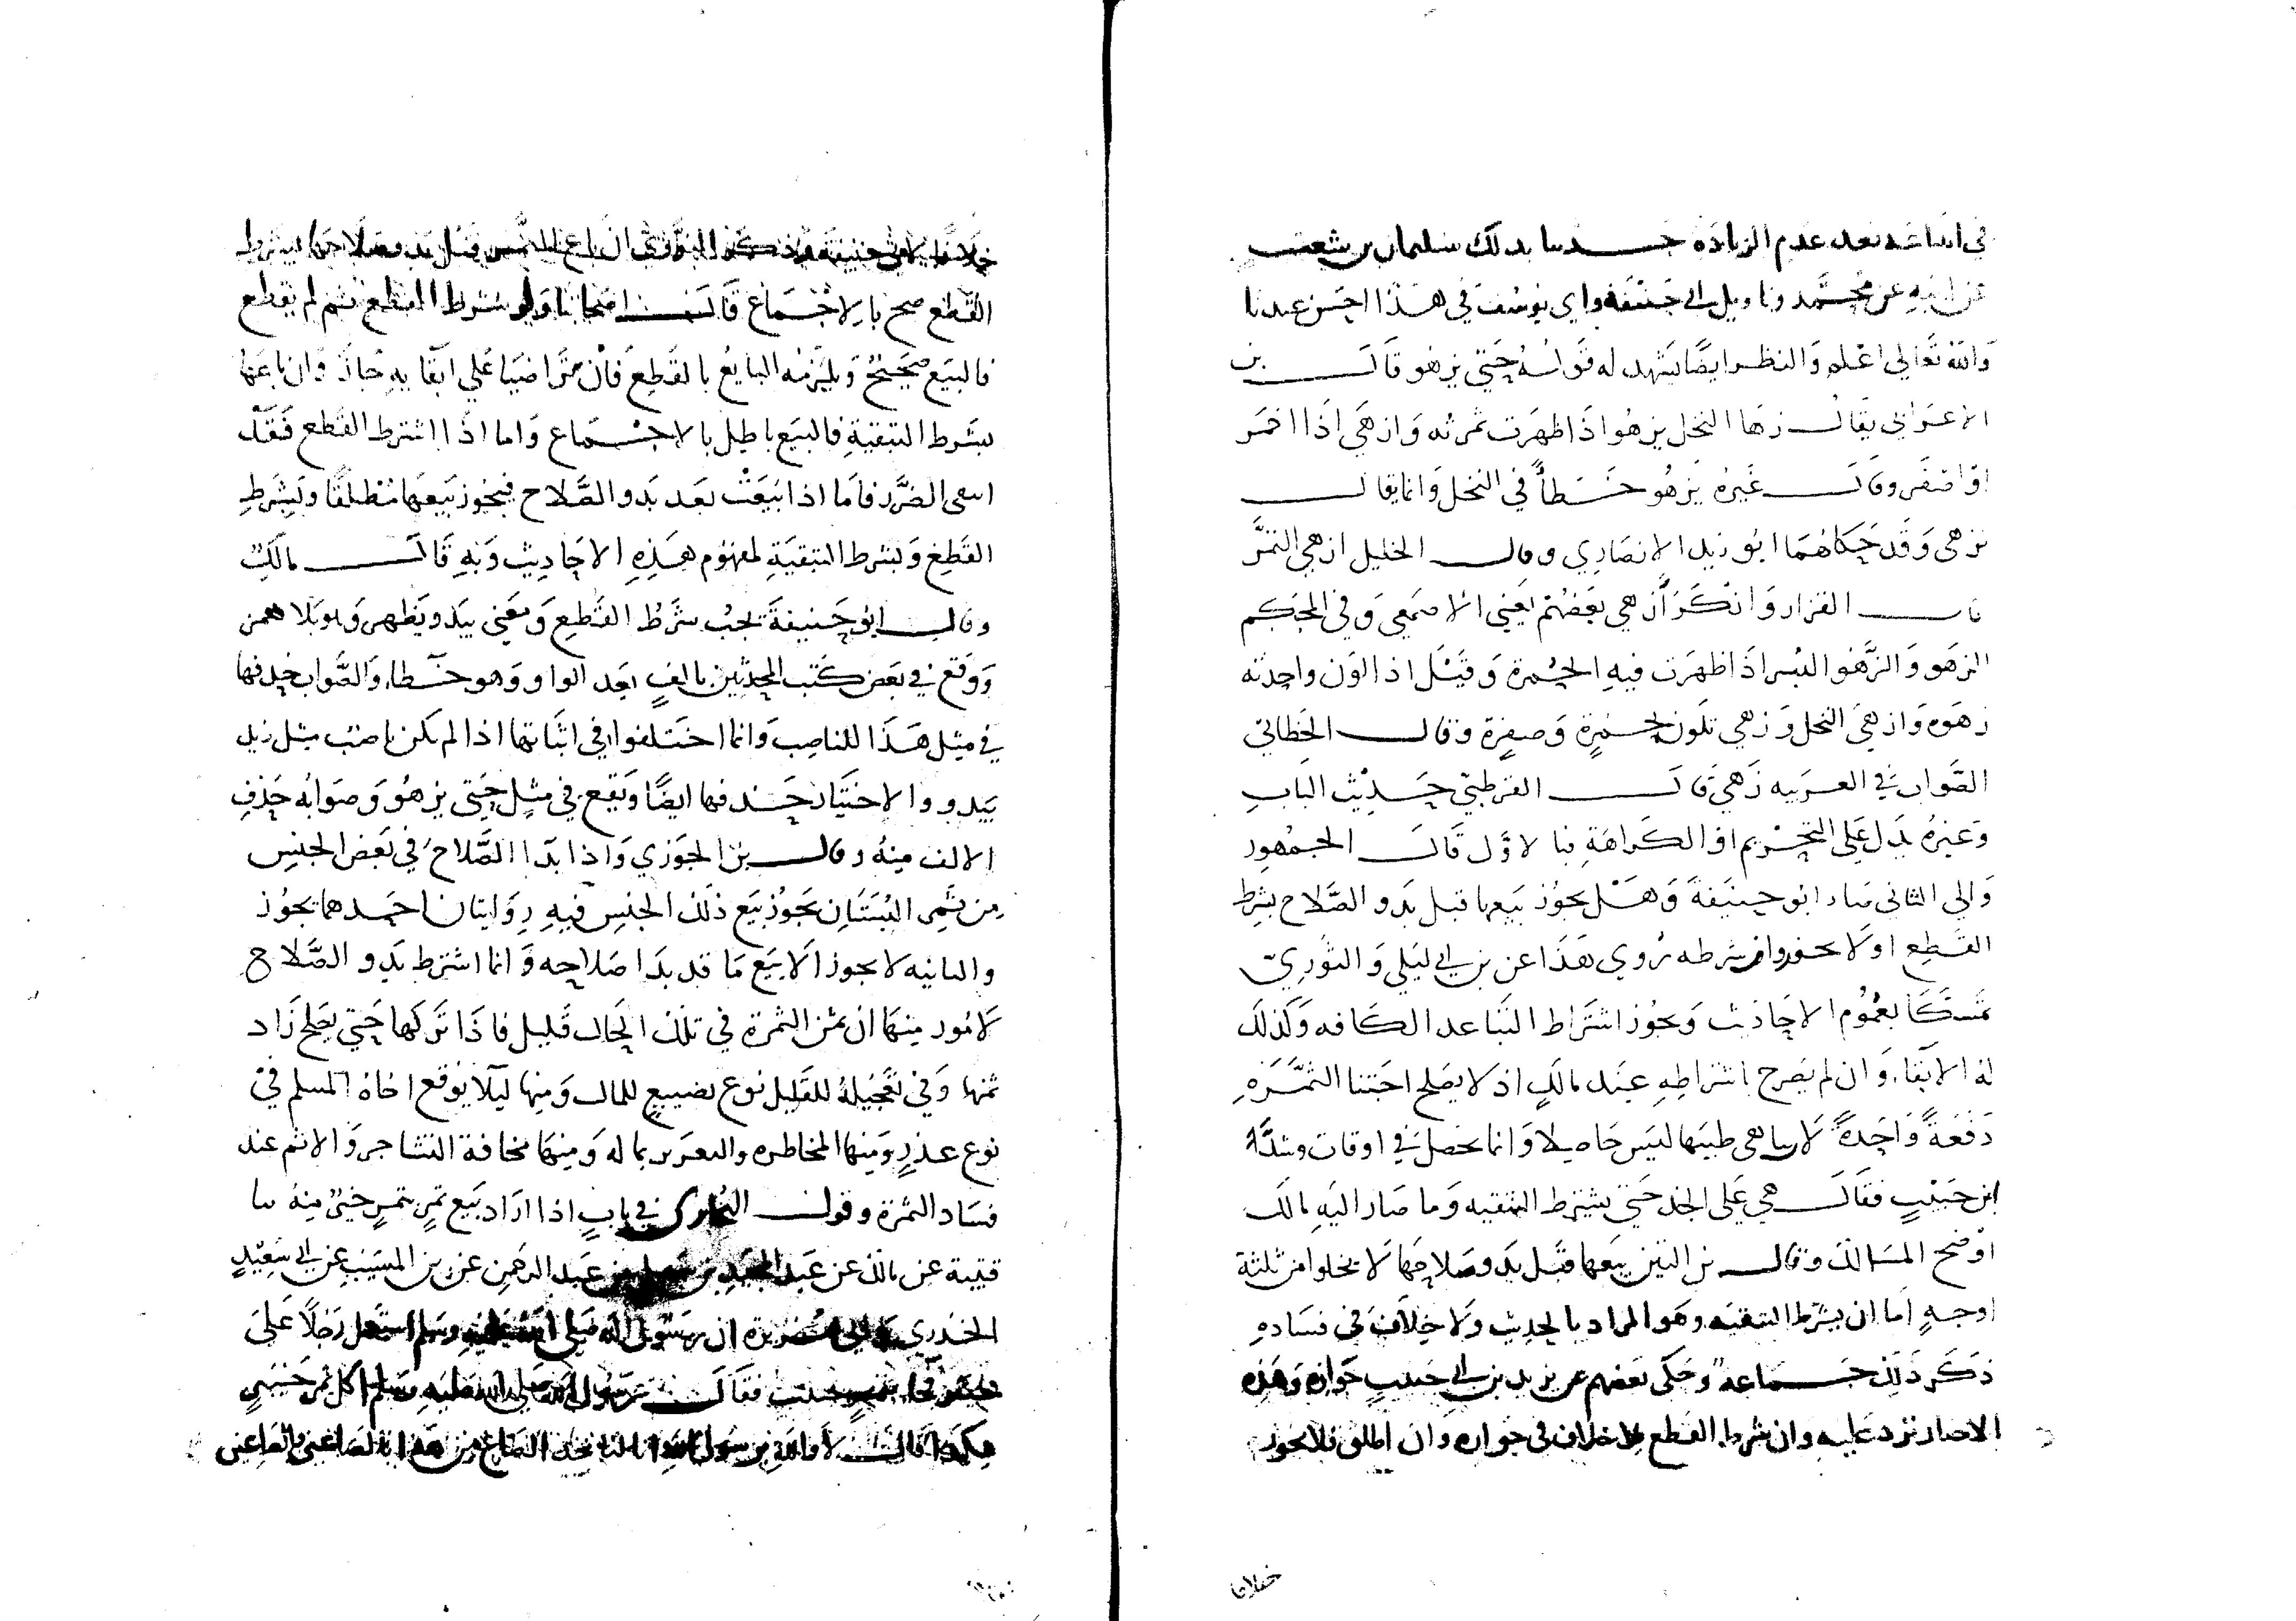 في ابتداعه بعد عدم الزيادة حدثنا بدلك سليمان بن شعيب
عن ابيه عن محمد وتاويل ابي حنيفة وابي يوسف في هذا احسن عندنا
والله تعالي اعلم والنظر ايضا يشهد له قوله حتي يزهو قال بن
الاعرابي يقال زها النخل يزهوا اذا ظهرت ثمرته وازهي اذا احمر
او اصفر وقال غيره يزهو خطأ في النخل وانما يقال
يزهي وقد حكاهما ابو زيد الانصاري وقال الخليل ازهي الثمر
قال القزاز وانكر ازهي بعضهم يعني الاصمعي وفي المحكم
الزهو والزهو البسر اذا ظهرت فيه الحمرة وقيل اذا لون واحدته
زهوه وازهي النخل وزهي تلون بحمرة وصفرة وقال الخطابي
الصواب في العربيه زهي قال القرطبي حديث الباب
وغيره يدل علي التحريم او الكراهة فبالاول قال الجمهور
والي الثاني صار ابو حنيفة وهل يجوز بيعها قبل بدو الصلاح بشرط
القطع او لا يجوز وان شرطه روي هذا عن بن ابي ليلي والثوري
تمسكا بعموم الاحاديث ويجوز اشتراط التبا عند الكافه وكذلك
له الابقاء وان لم يصرح باشتراطه عند مالك اذ لا يصلح اجتنا الثمره
دفعة واحدة لان تناهي طيبها ليس حاصلا وانما يحصل في اوقات وشذ
ابن حبيب فقال هي علي الجذ حتي يشترط التبقيه وما صار اليه مالك
اوضح المسالك وقال بن التين بيعها قبل بدو صلاحها لا يخلوا من ثلثة
اوجه اما ان يشترط التبقيه وهو المراد بالحديث ولا خلاف في فساده
ذكر ذلك جماعة وحكي بعضهم عن يزيد بن ابي حبيب جوازه وهذه
الاخبار ترد عليه وان شرط القطع فلا خلاف في جوازه وان اطلق فلا يجوز
خلافا
خلافا لابي حنيفة وذكر النووي ان باع الثمر قبل بدو صلاحها بشرط
القطع صح بالاجماع قال اصحابنا ولو شرط القطع ثم لم يقطع
فالبيع صحيح ويلزمه البايع بالقطع فان تراضيا علي ابقايه جاز وان باعها
بشرط التبقية فالبيع باطل بالاجماع واما اذا اشترط القطع فقد
انتفي الضرر فاما اذا بيعت بعد بدو الصلاح فيجوز بيعها مطلقا وبشرط
القطع وبشرط التبقية لمفهوم هذه الاحاديث وبه قال مالك
وقال ابو حنيفة يجب شرط القطع ومعني يبدو يظهر وهو بلا همز
ووقع في بعض كتب المحدثين بالف بعد الواو وهو خطا والصواب حذفها
في مثل هذا للناصب وانما اختلفوا في اثباتها اذا لم يكن ناصب مثل زيد
يبدوو الاختيار حذفها ايضا ويقع في مثل حتي يزهو وصوابه حذف
الالف منه وقال بن الجوزي واذا بدا الصلاح في بعض الجنس
من ثمر البستان يجوز بيع ذلك الجنس فيه روايتان احدهما يجوز
والثانيه لا يجوز الا بيع ما قد بدا صلاحه وانما اشترط بدو الصلاح
لامور منها ان ثمن الثمرة في تلك الحال قليل فاذا تركها حتي يصلح زاد
ثمنها وفي تعجيله للقليل نوع تضييع للمال ومنها ليلا يوقع اخاه المسلم في
نوع غذر ومنها المخاطره والتغرير بماله ومنها مخافة التشاجر والاثم عند
فساد الثمرة وقول البخاري في باب اذا اراد بيع تمر بتمر خير منه ثنا
قتيبة عن مالك عن عبد المجيد بن سهيل بن عبد الرحمن عن بن المسيب عن ابي سعيد
الخدري وابي هريرة ان رسول الله صلي الله عليه وسلم استعمل رجلا علي
خيبر فجاه بتمر جنيب فقال رسول الله صلي الله عليه وسلم اكل تمر خيبر
هكذا قال لا والله يرسول الله انا لناخذ الصاع من هذا بالصاعين والصاعين